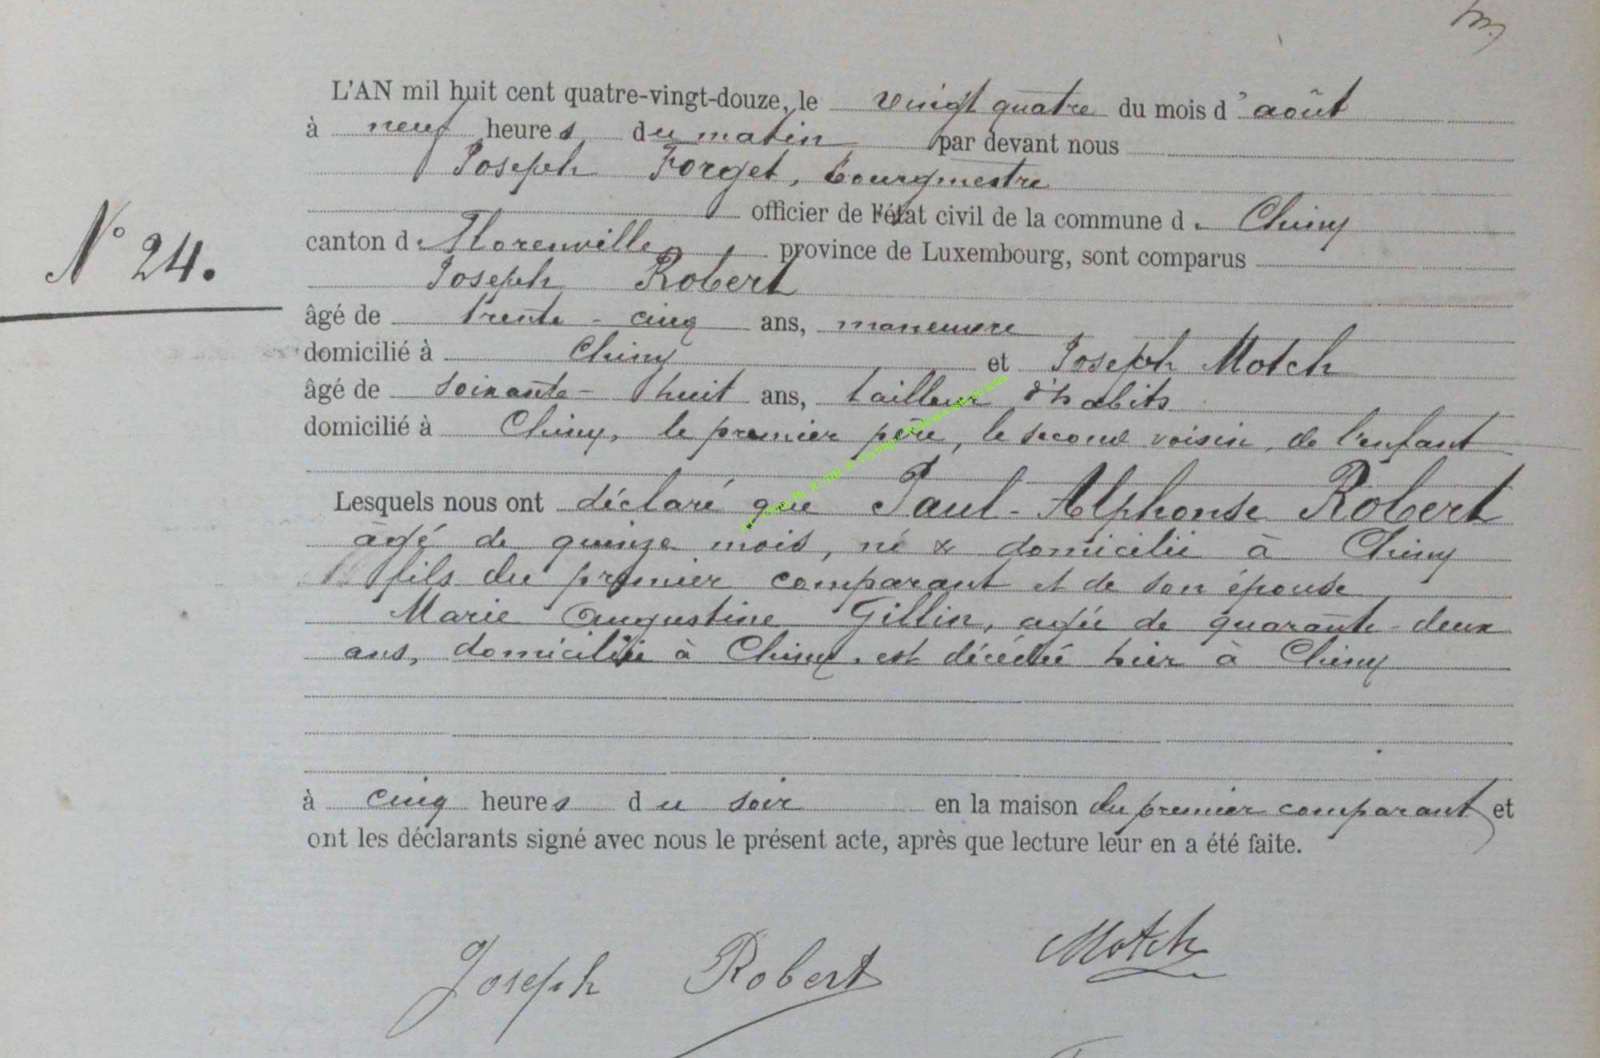 L'AN mil huit cent quatre-vingt-douze, le vingt quatre du mois d'août
à neuf heures du matin par devant nous
Joseph Forget, bourgmestre
officier de l'état civil de la commune de Chiny
N° 24.
canton de Florenville province de Luxembourg, sont comparus
Joseph Robert
âgé de trente-cinq ans, manœuvre
domicilié à Chiny et Joseph Motch
âgé de soixante-huit ans, tailleur d'habits
domicilié à Chiny, le premier père, le second voisin de l'enfant
Lesquels nous ont déclaré que Paul-Alphonse Robert
âgé de quinze mois, né & domicilié à Chiny
fils du premier comparant et de son épouse
Marie Augustine Gillin, agée de quarante-deux
ans, domiciliée à Chiny, est décédé hier à Chiny
à cinq heures du soir en la maison du premier comparant et
ont les déclarants signé avec nous le présent acte, après que lecture leur en a été faite.
Joseph Robert Motch